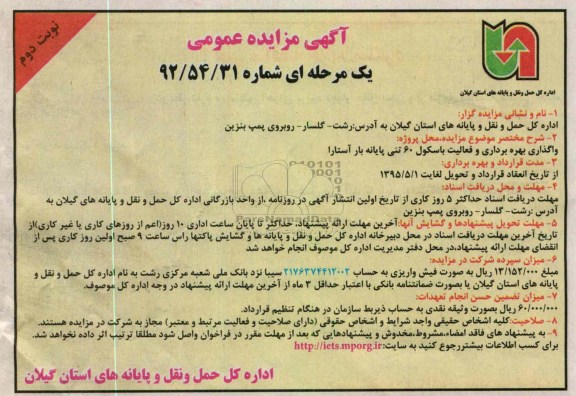 نوبت دوم
آگهی مزایده عمومی
یک مرحله ای شماره ۹۲/۵۴/۳۱
اداره کل حمل ونقل و پایانه های استان گیلان
۱- نام و نشانی مزایده گزار:
اداره کل حمل و نقل و پایانه های استان گیلان به آدرس:رشت- گلسار- روبروی پمپ بنزین
۲- شرح مختصر موضوع مزایده،محل پروژه:
واگذاری بهره برداری و فعالیت باسکول ۶۰ تنی پایانه بار آستارا
۳- مدت قرارداد و بهره برداری:
از تاریخ انعقاد قرارداد و تحویل لغایت ۱۳۹۵/۵/۱
۴- مهلت و محل دریافت اسناد:
مهلت دریافت اسناد حداکثر ۵ روز کاری از تاریخ اولین انتشار آگهی در روزنامه ،از واحد بازرگانی اداره کل حمل و نقل و پایانه های گیلان به
آدرس :رشت- گلسار- روبروی پمپ بنزین
۵- مهلت تحویل پیشنهادها و گشایش آنها:آخرین مهلت ارائه پیشنهاد، حداکثر تا پایان ساعت اداری ۱۰ روز(اعم از روزهای کاری یا غیر کاری)از
تاریخ آخرین مهلت دریافت اسناد در محل دبیرخانه اداره کل حمل و نقل و پایانه ها و گشایش پاکتها راس ساعت ۹ صبح اولین روز کاری پس از
انقضای مهلت ارائه پیشنهاد،در محل دفتر مدیریت اداره کل موصوف انجام خواهد شد
۶- میزان سپرده شرکت در مزایده:
مبلغ ۱۳/۱۵۲/۰۰۰ ریال به صورت فیش واریزی به حساب ۲۱۷۶۳۷۴۴۱۲۰۰۲ سیبا نزد بانک ملی شعبه مرکزی رشت به نام اداره کل حمل و نقل و
پایانه های استان گیلان یا بصورت ضمانتنامه بانکی با اعتبار حداقل ۳ ماه از آخرین مهلت ارائه پیشنهاد در وجه اداره کل موصوف.
۷- میزان تضمین حسن انجام تعهدات:
۶۰/۰۰۰/۰۰۰ ریال بصورت وثیقه نقدی به حساب ذیربط سازمان در هنگام تنظیم قرارداد.
۸- صلاحیت:کلیه اشخاص حقیقی واجد شرایط و اشخاص حقوقی (دارای صلاحیت و فعالیت مرتبط و معتبر) مجاز به شرکت در مزایده هستند.
۹- به پیشنهاد های فاقد امضاء،مشروط،مخدوش و پیشنهادهایی که بعد از مهلت مقرر در فراخوان واصل شود مطلقا ترتیب اثر داده نخواهد شد.
برای کسب اطلاعات بیشتررجوع کنید به سایت:http://iets.mporg.ir
اداره کل حمل ونقل و پایانه های استان گیلان